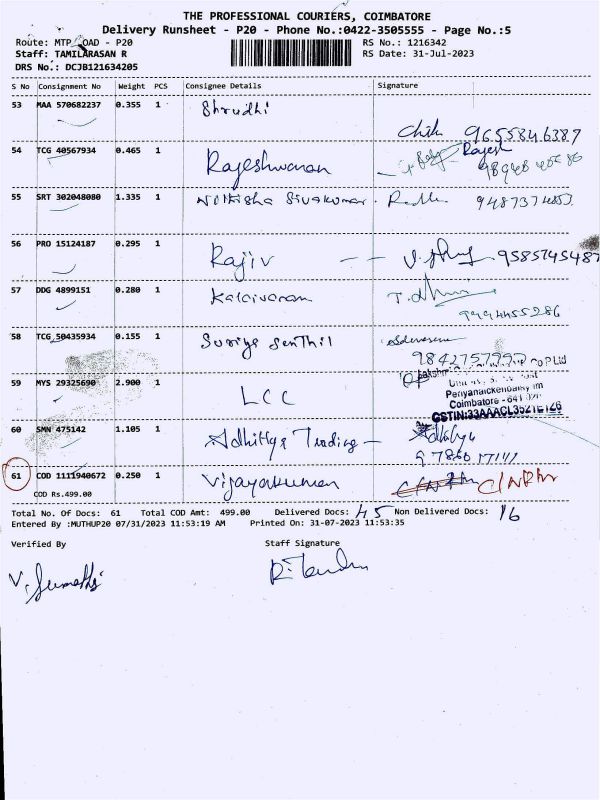 THE PROFESSIONAL COURIERS, COIMBATORE
Delivery Runsheet - P20 - Phone No.:0422-3505555 - Page No.:5
Route: MTP OAD - P20
RS No.: 1216342
Staff: TAMILARASAN R
RS Date: 31-Jul-2023
DRS No.: DCJB121634205
S No Consignment No Weight PCS Consignee Details Signature
53 MAA 570682237 0.355 1 Shrudhi
9655846387
54 TCG 40567934 0.465 1 Rajeshwaran Rajesh
55 SRT 302048080 1.335 1 Sivakumar.
56 PRO 15124187 0.295 1 Rajiv -- 9585745487
57 DDG 4899151 0.280 1 Kalaivanan T.
9994455286
58 TCG 50435934 0.155 1 Suriya Senthil
9842757997
59 MYS 29325690 2.900 1 LCC
Co P Ltd
Periyanaickenpalayam
Coimbatore - 641 020
60 SMN 475142 1.105 1 Adhithya Trading -
9786017111
61 COD 1111940672 0.250 1 Vijayakumar C/NRhr
COD Rs.499.00
Total No. Of Docs: 61 Total COD Amt: 499.00 Delivered Docs: 45 Non Delivered Docs: 16
Entered By :MUTHUP20 07/31/2023 11:53:19 AM Printed On: 31-07-2023 11:53:35
Verified By Staff Signature